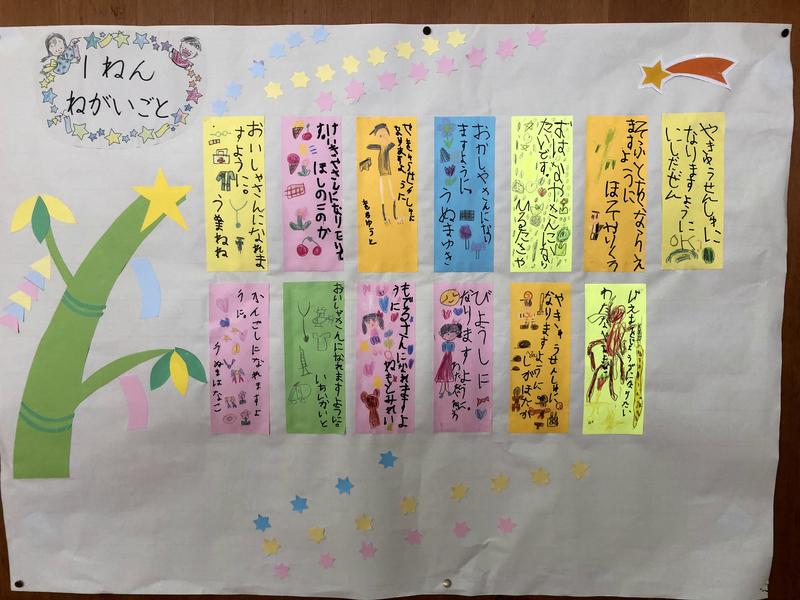 1ねん
ねがいごと
おいしゃさんになれま
すように。
けいきやさんになりたい
な。ほしのこのか
やきゅうせんしゅに
なりますように
おかしやさんになり
ますように
うぬまゆき
おはなやさんになり
たいです。
ひるたさや
ますように
やきゅうせんしゅに
なりますように
にしだぜん
かんごしになれますよ
うに。
うぬまはなこ
おいしゃさんになれますように。
いちいかいと
もでるさんになれますよ
うに
ねもとみれい
びようしに
なりますように
やきゅうせんしゅに
なりますように